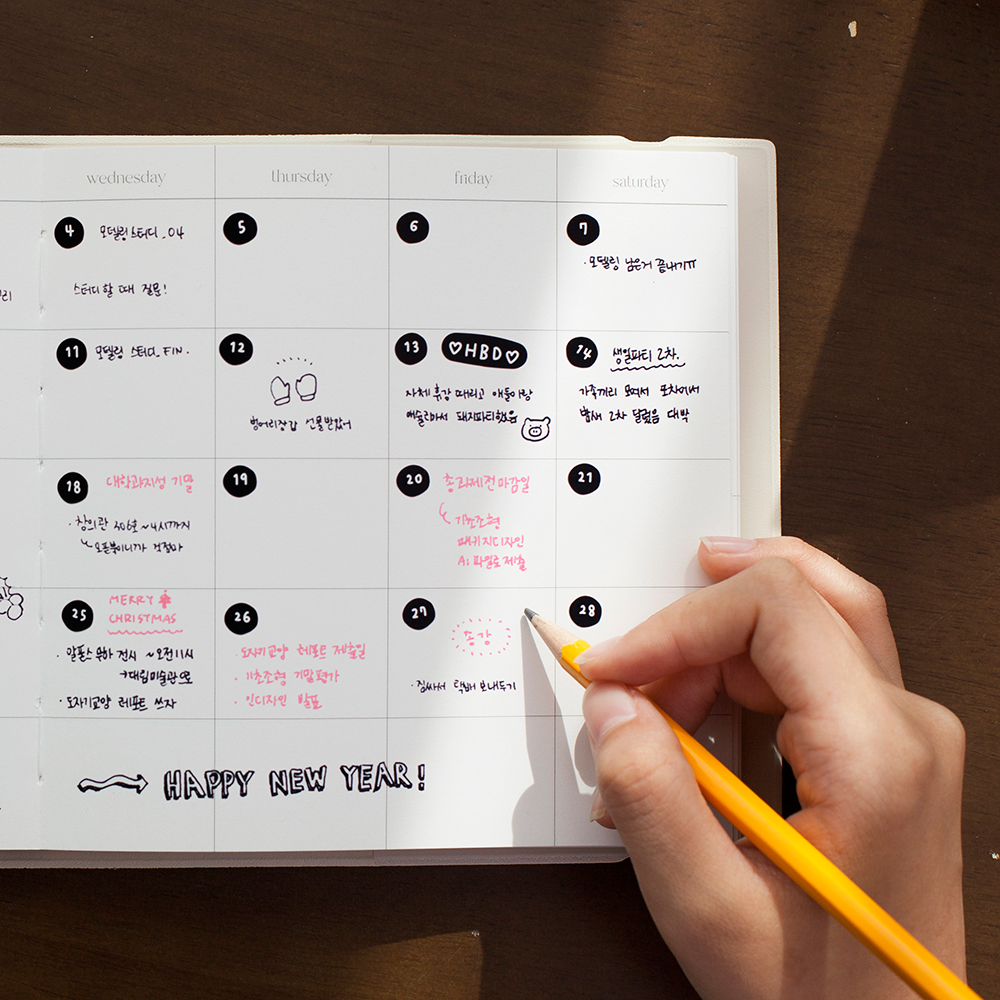 wednesday
thursday
friday
saturday
4
모델링 스터디_04
스터디 할 때 질문!
5
6
7
· 모델링 남은거 끝내기ㅠ
11
모델링 스터디_FIN.
12
벙어리장갑 선물받았어
13
♡HBD♡
자체 휴강 때리고 애들이랑
예술마서 돼지파티했음
14
생일파티 2차.
가족끼리 모여서
밤새 2차 달렸음 대박
18
대학과지성 기말
· 창의관 406호 ~4시까지
오픈북이니까 걱정마
19
20
총과제전 마감일
기초조형
패키지디자인
Ai 파일로 제출
21
25
MERRY
CHRISTMAS
· 알폰스 무하 전시 ~오전11시
→대림미술관
· 도자기교양 레포트 쓰자
26
· 도자기교양 레포트 제출일
· 기초조형 기말평가
· 인디자인 발표
27
종강
· 짐싸서 택배 보내두기
28
HAPPY NEW YEAR!